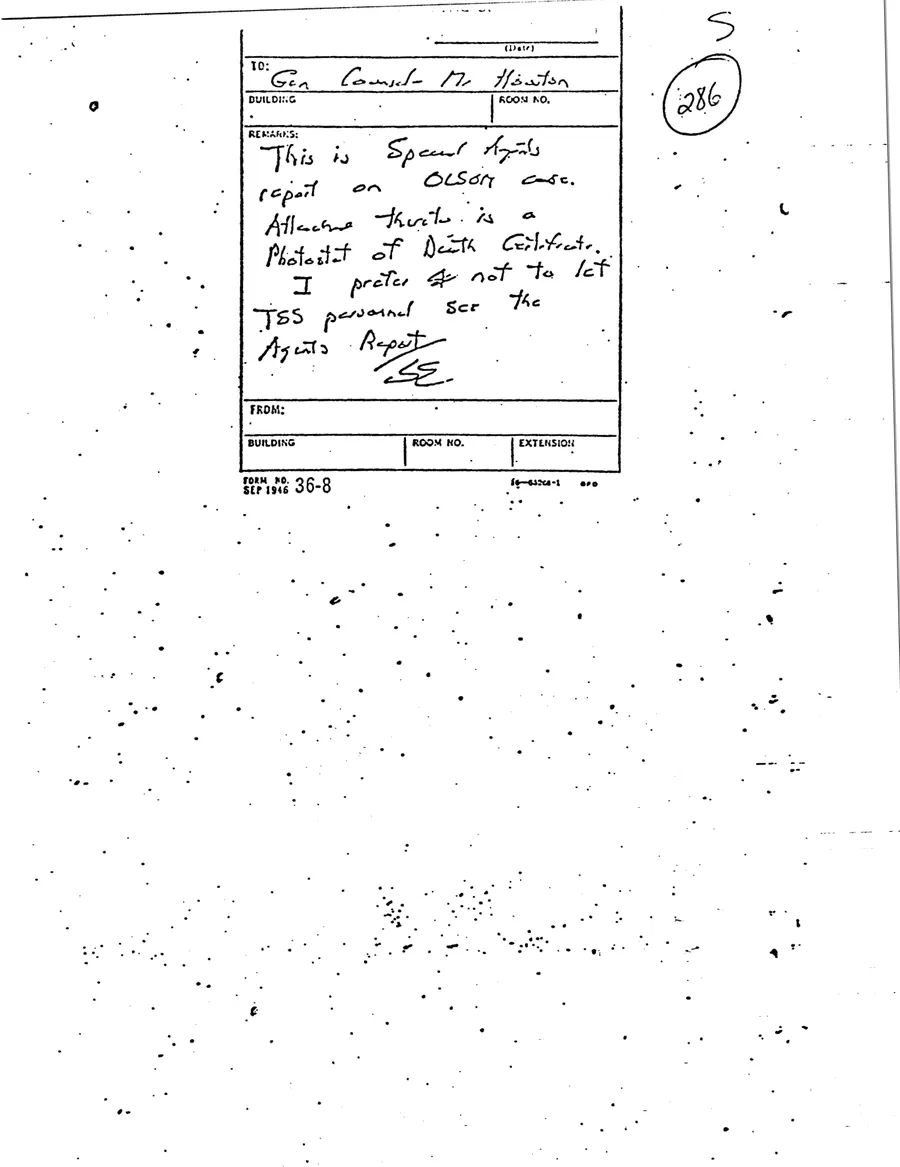 S
286
(Date)
TO:
Gen Counsel- Mr Houston
BUILDING
ROOM NO.
REMARKS:
This is Special Agents
report on OLSON case.
Attached thereto is a
Photostat of Death Certificate.
I prefer not to let
TSS personnel see the
Agents Report
FROM:
BUILDING
ROOM NO.
EXTENSION
FORM NO.
SEP 1946 36-8
GPO